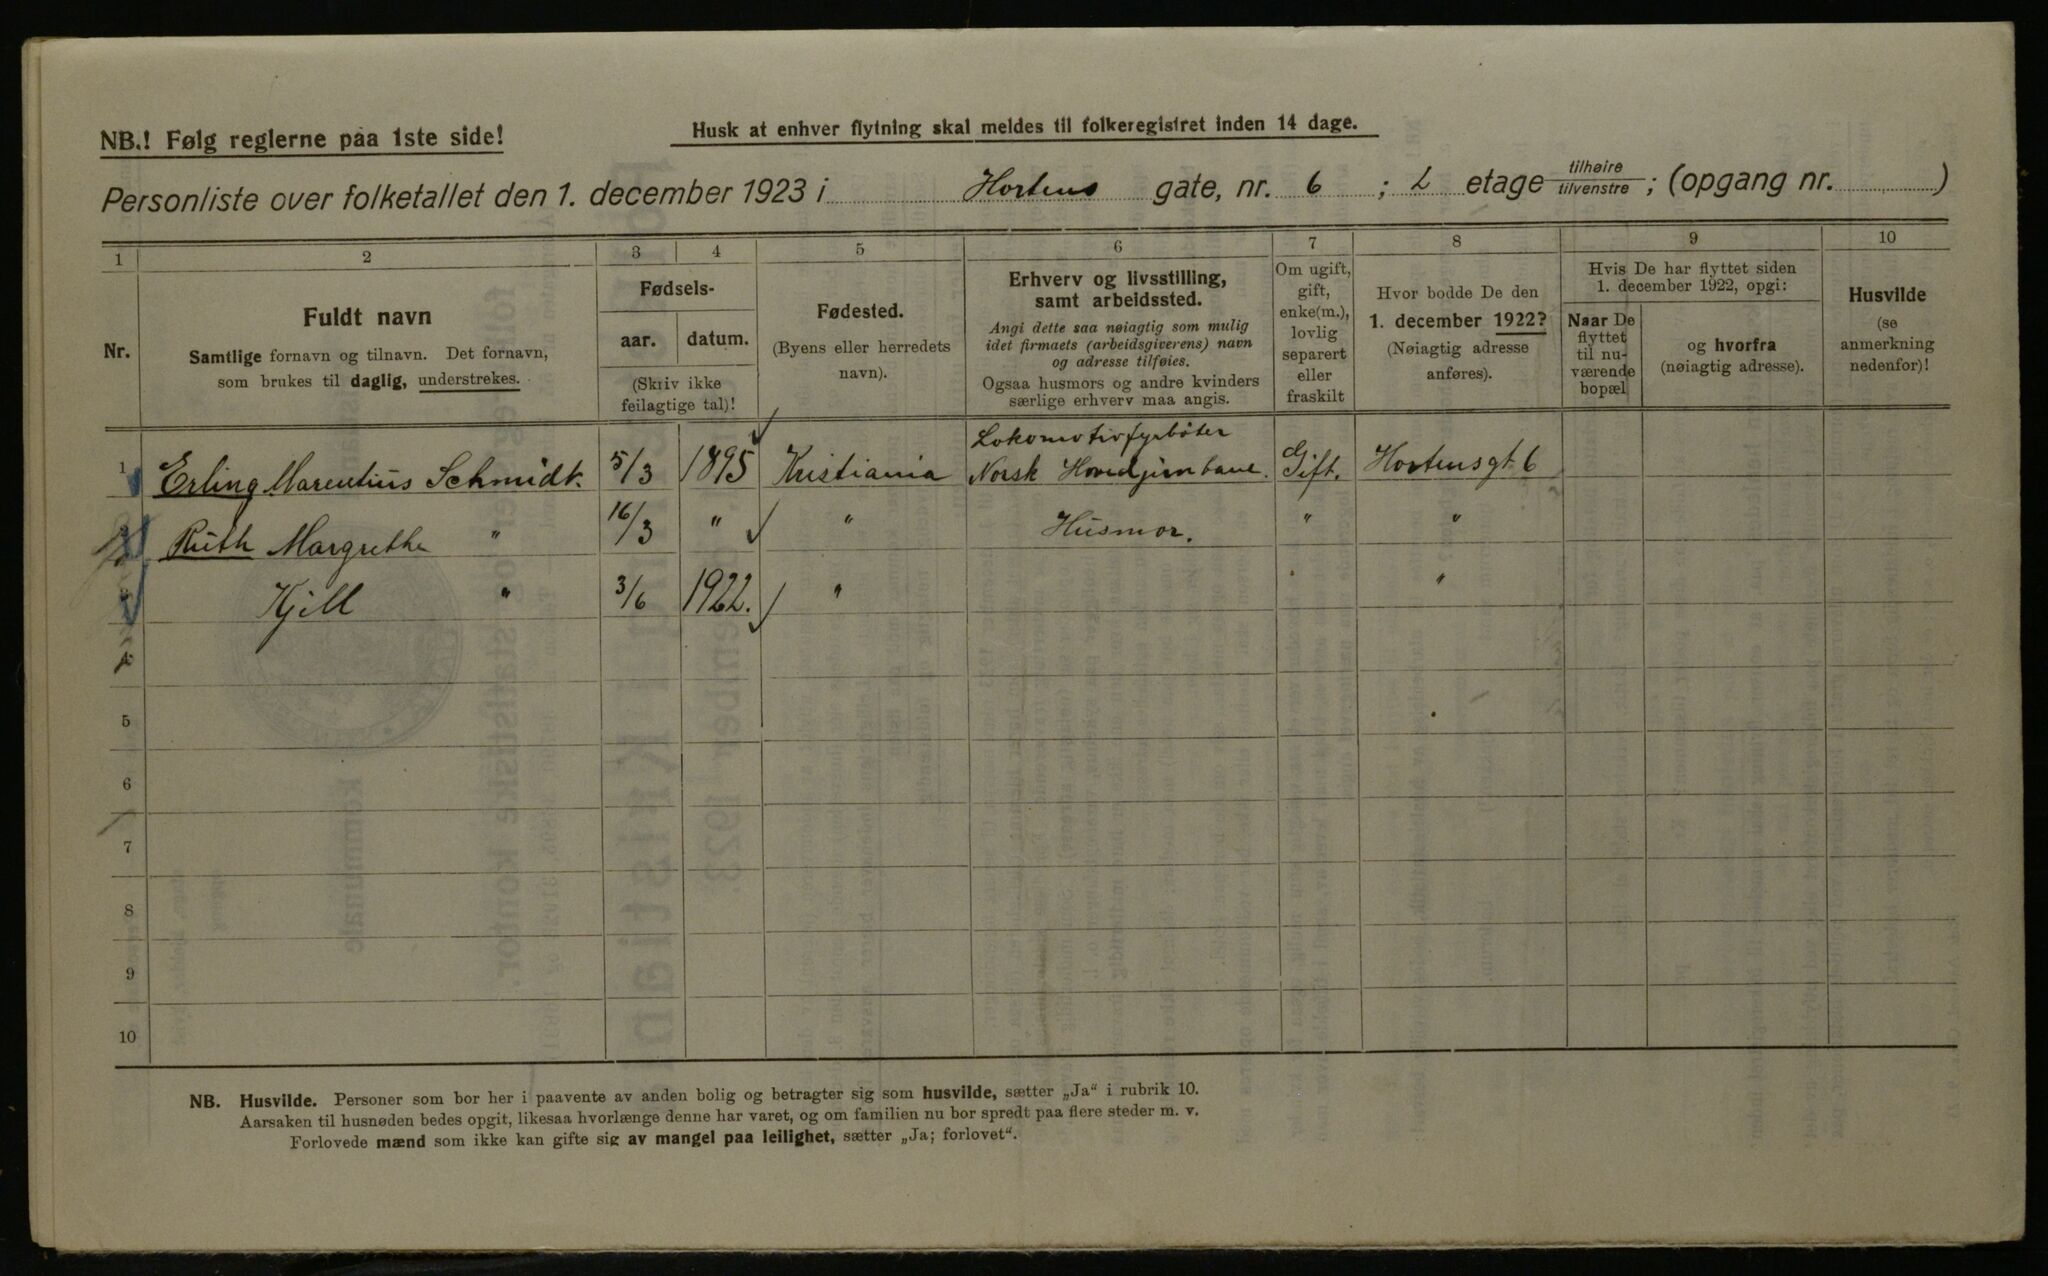 NB.! Følg reglerne paa 1ste side!
Husk at enhver flytning skal meldes til folkeregistret inden 14 dage.
Personliste over folketallet den 1. december 1923 i Hortens gate, nr. 6 ; 2 etage tilhøire tilvenstre ; (opgang nr. )
1 2 3 4 5 6 7 8 9 10
Nr.
Fuldt navn
Samtlige fornavn og tilnavn. Det fornavn,
som brukes til daglig, understrekes.
Fødsels-
aar. datum.
(Skriv ikke
feilagtige tal)!
Fødested.
(Byens eller herredets
navn).
Erhverv og livsstilling,
samt arbeidssted.
Angi dette saa nøiagtig som mulig
idet firmaets (arbeidsgiverens) navn
og adresse tilføies.
Ogsaa husmors og andre kvinders
særlige erhverv maa angis.
Om ugift,
gift,
enke(m.),
lovlig
separert
eller
fraskilt
Hvor bodde De den
1. december 1922?
(Nøiagtig adresse
anføres).
Hvis De har flyttet siden
1. december 1922, opgi:
Naar De
flyttet
til nu-
værende
bopæl
og hvorfra
(nøiagtig adresse).
Husvilde
(se
anmerkning
nedenfor)!
Lokomotivfyrbøter
1 Erling Marentius Schmidt. 5/3 1895 Kristiania Norsk Hovedjernbane. Gift. Hortensgt. 6
Ruth Margrethe " 16/3 " " Husmor. " "
Kjell " 3/6 1922. " "
4
5
6
7
8
9
10
NB. Husvilde. Personer som bor her i paavente av anden bolig og betragter sig som husvilde, sætter „Ja“ i rubrik 10.
Aarsaken til husnøden bedes opgit, likesaa hvorlænge denne har varet, og om familien nu bor spredt paa flere steder m. v.
Forlovede mænd som ikke kan gifte sig av mangel paa leilighet, sætter „Ja; forlovet“.